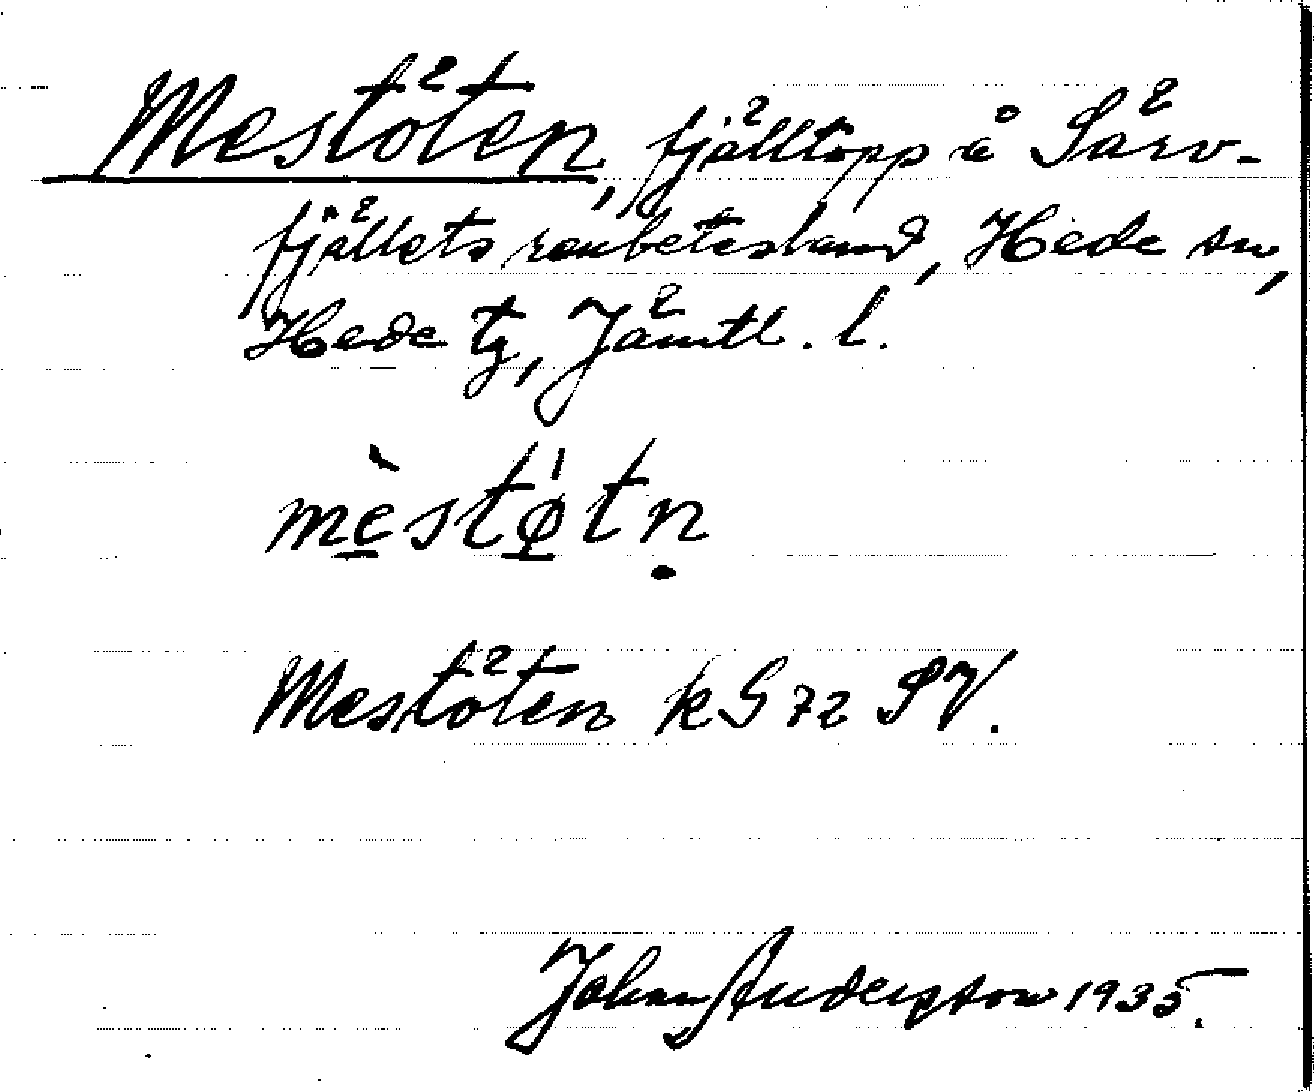 Mestöten, fjälltopp å Särv-
fjällets renbetesland, Hede sn,
Hede tg, Jämtl. l.
mèstø̱tṇ
Mestöten kG 72 SV.
Johan Andersson 1935.